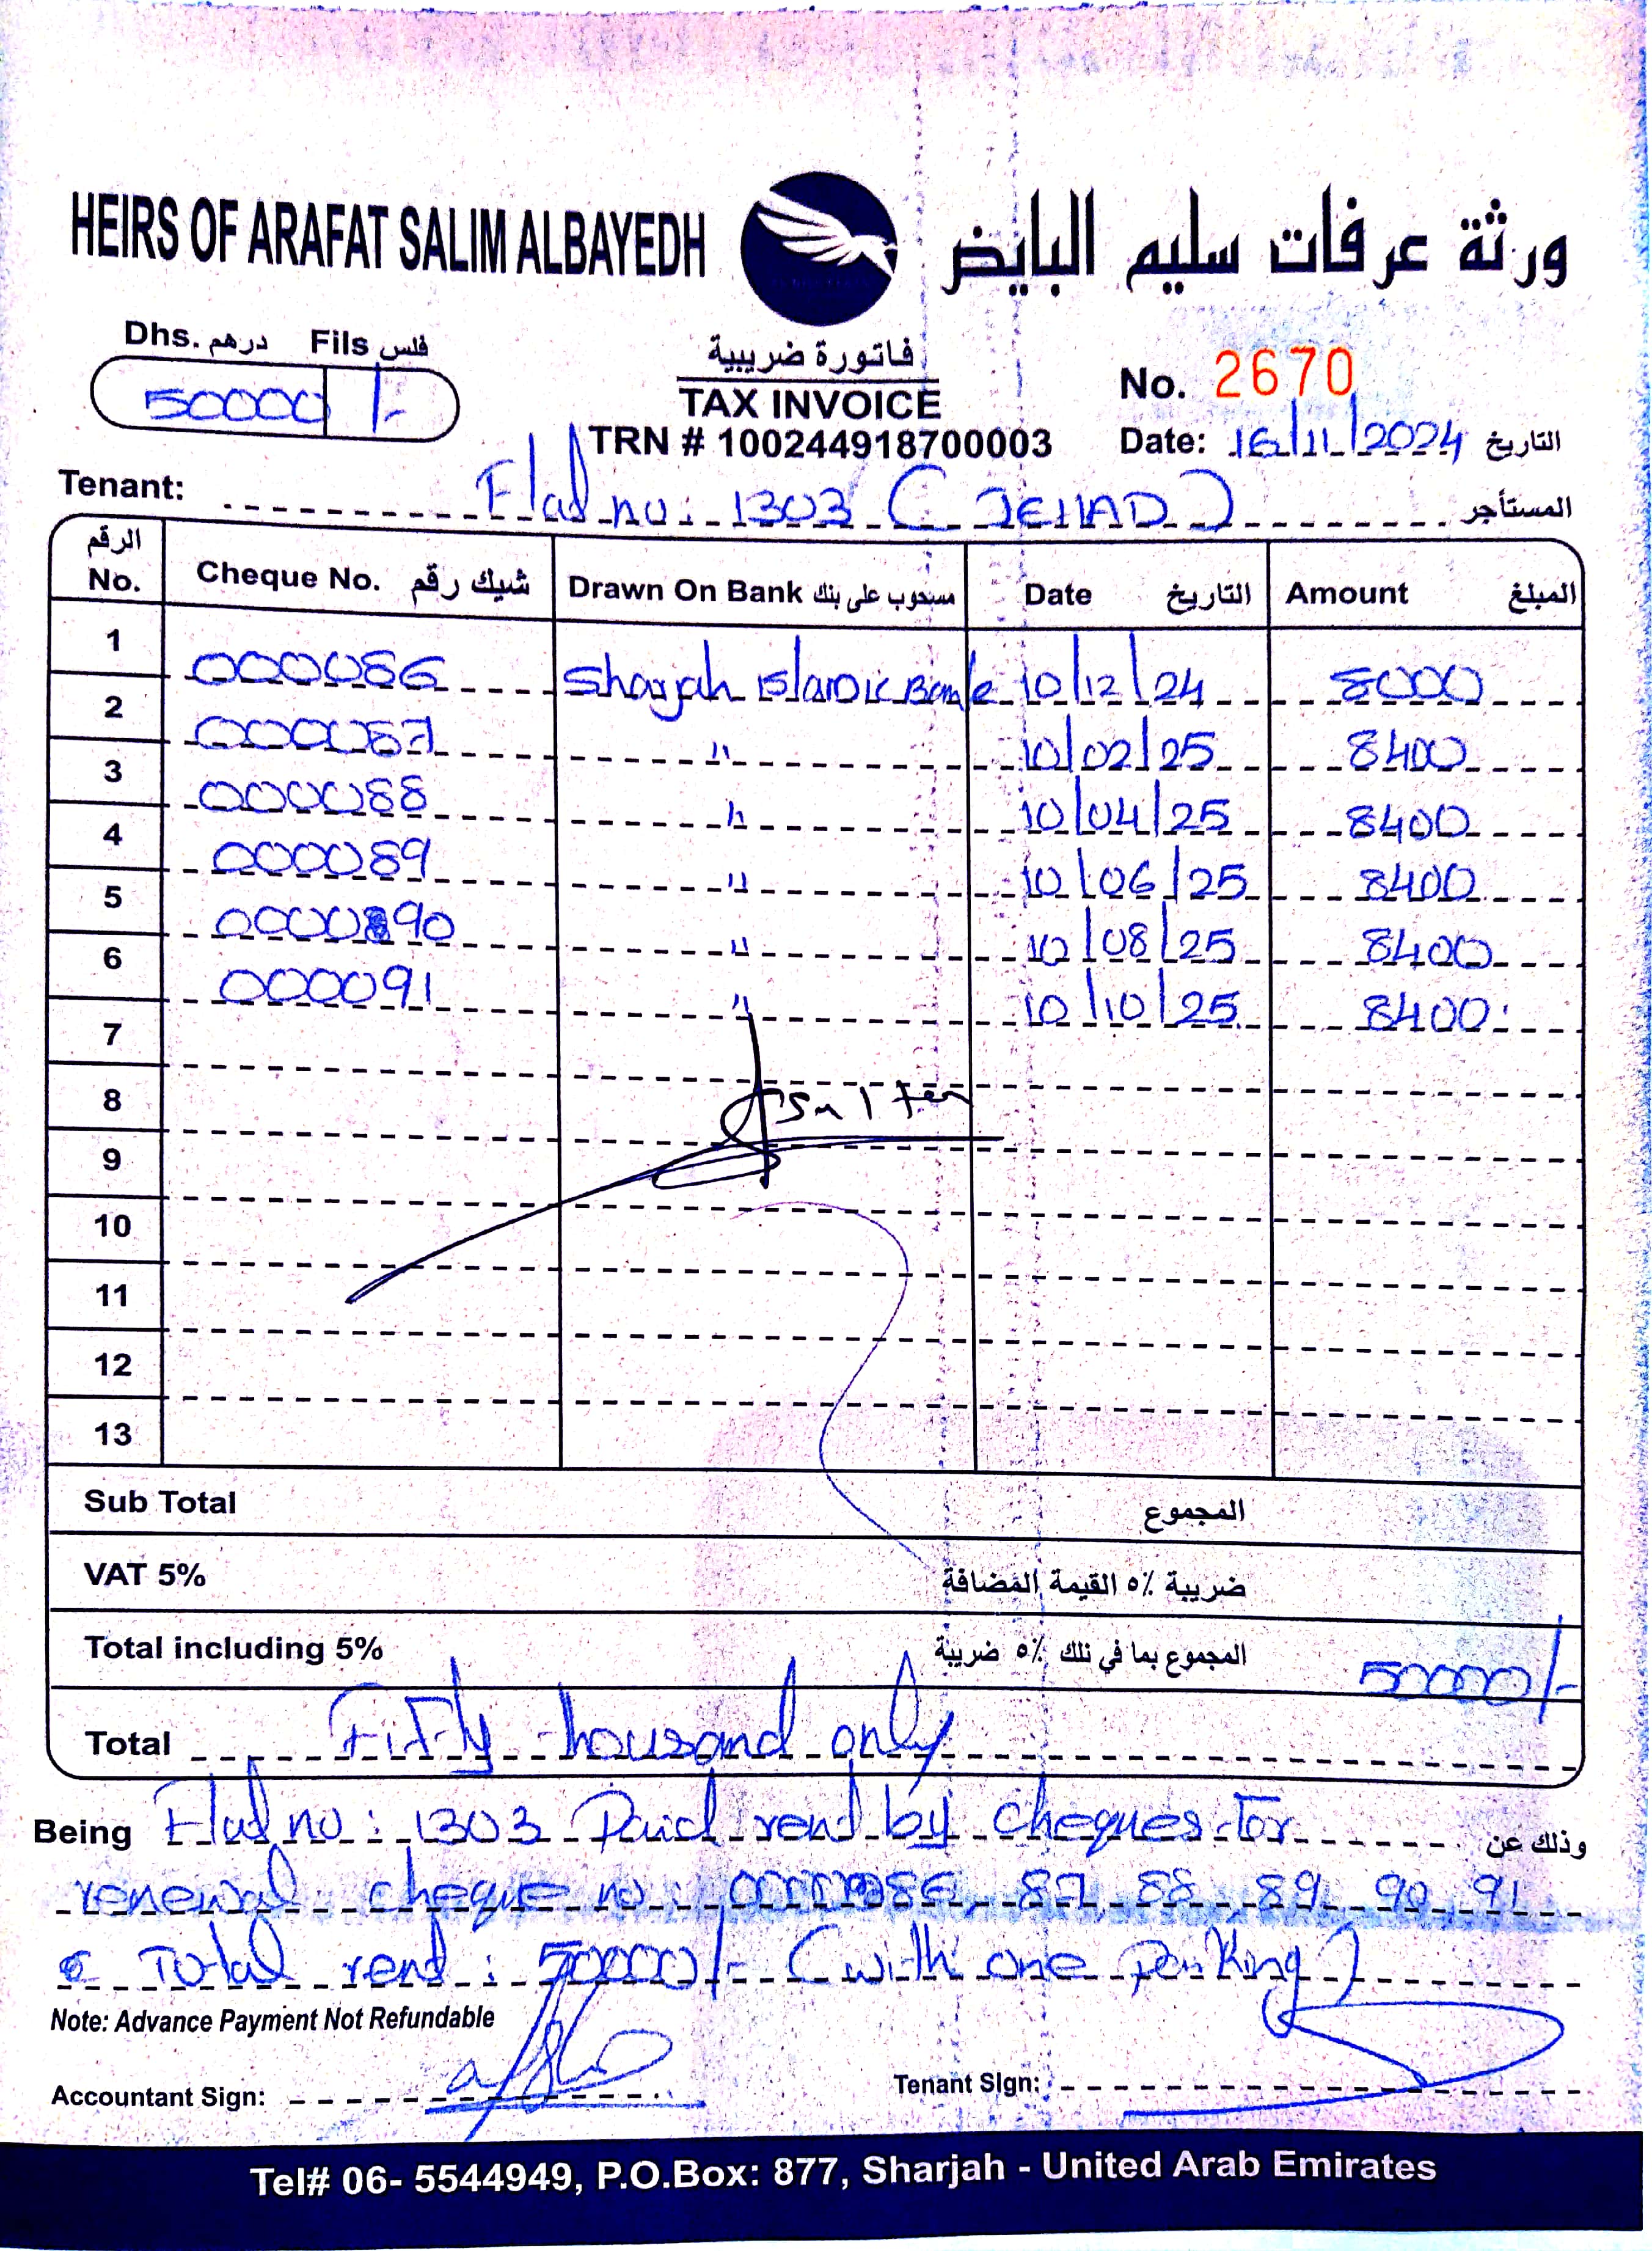 HEIRS OF ARAFAT SALIM ALBAYEDH ورثة عرفات سليم البايض
Dhs. درهم Fils فلس
50000 /-
فاتورة ضريبية
TAX INVOICE
TRN # 100244918700003
No. 2670
Date: 16/11/2024 التاريخ
Tenant: Flat no: 1303 (JEHAD) المستأجر
الرقم No. Cheque No. شيك رقم Drawn On Bank مسحوب على بنك Date التاريخ Amount المبلغ
1 000086 Sharjah Islamic Bank 10/12/24 8000
2 000087 " 10/02/25 8400
3 000088 " 10/04/25 8400
4 000089 " 10/06/25 8400
5 000090 " 10/08/25 8400
6 000091 " 10/10/25 8400
7
8
9
10
11
12
13
Sub Total المجموع
VAT 5% ضريبة ٥٪ القيمة المضافة
Total including 5% المجموع بما في ذلك ٥٪ ضريبة 50000/-
Total Fifty thousand only
Being Flat no: 1303 Paid rent by cheques for وذلك عن
renewal cheque no: 000086, 87, 88, 89, 90, 91
Total rent: 50000/- (with one parking)
Note: Advance Payment Not Refundable
Accountant Sign: Tenant Sign:
Tel# 06- 5544949, P.O.Box: 877, Sharjah - United Arab Emirates